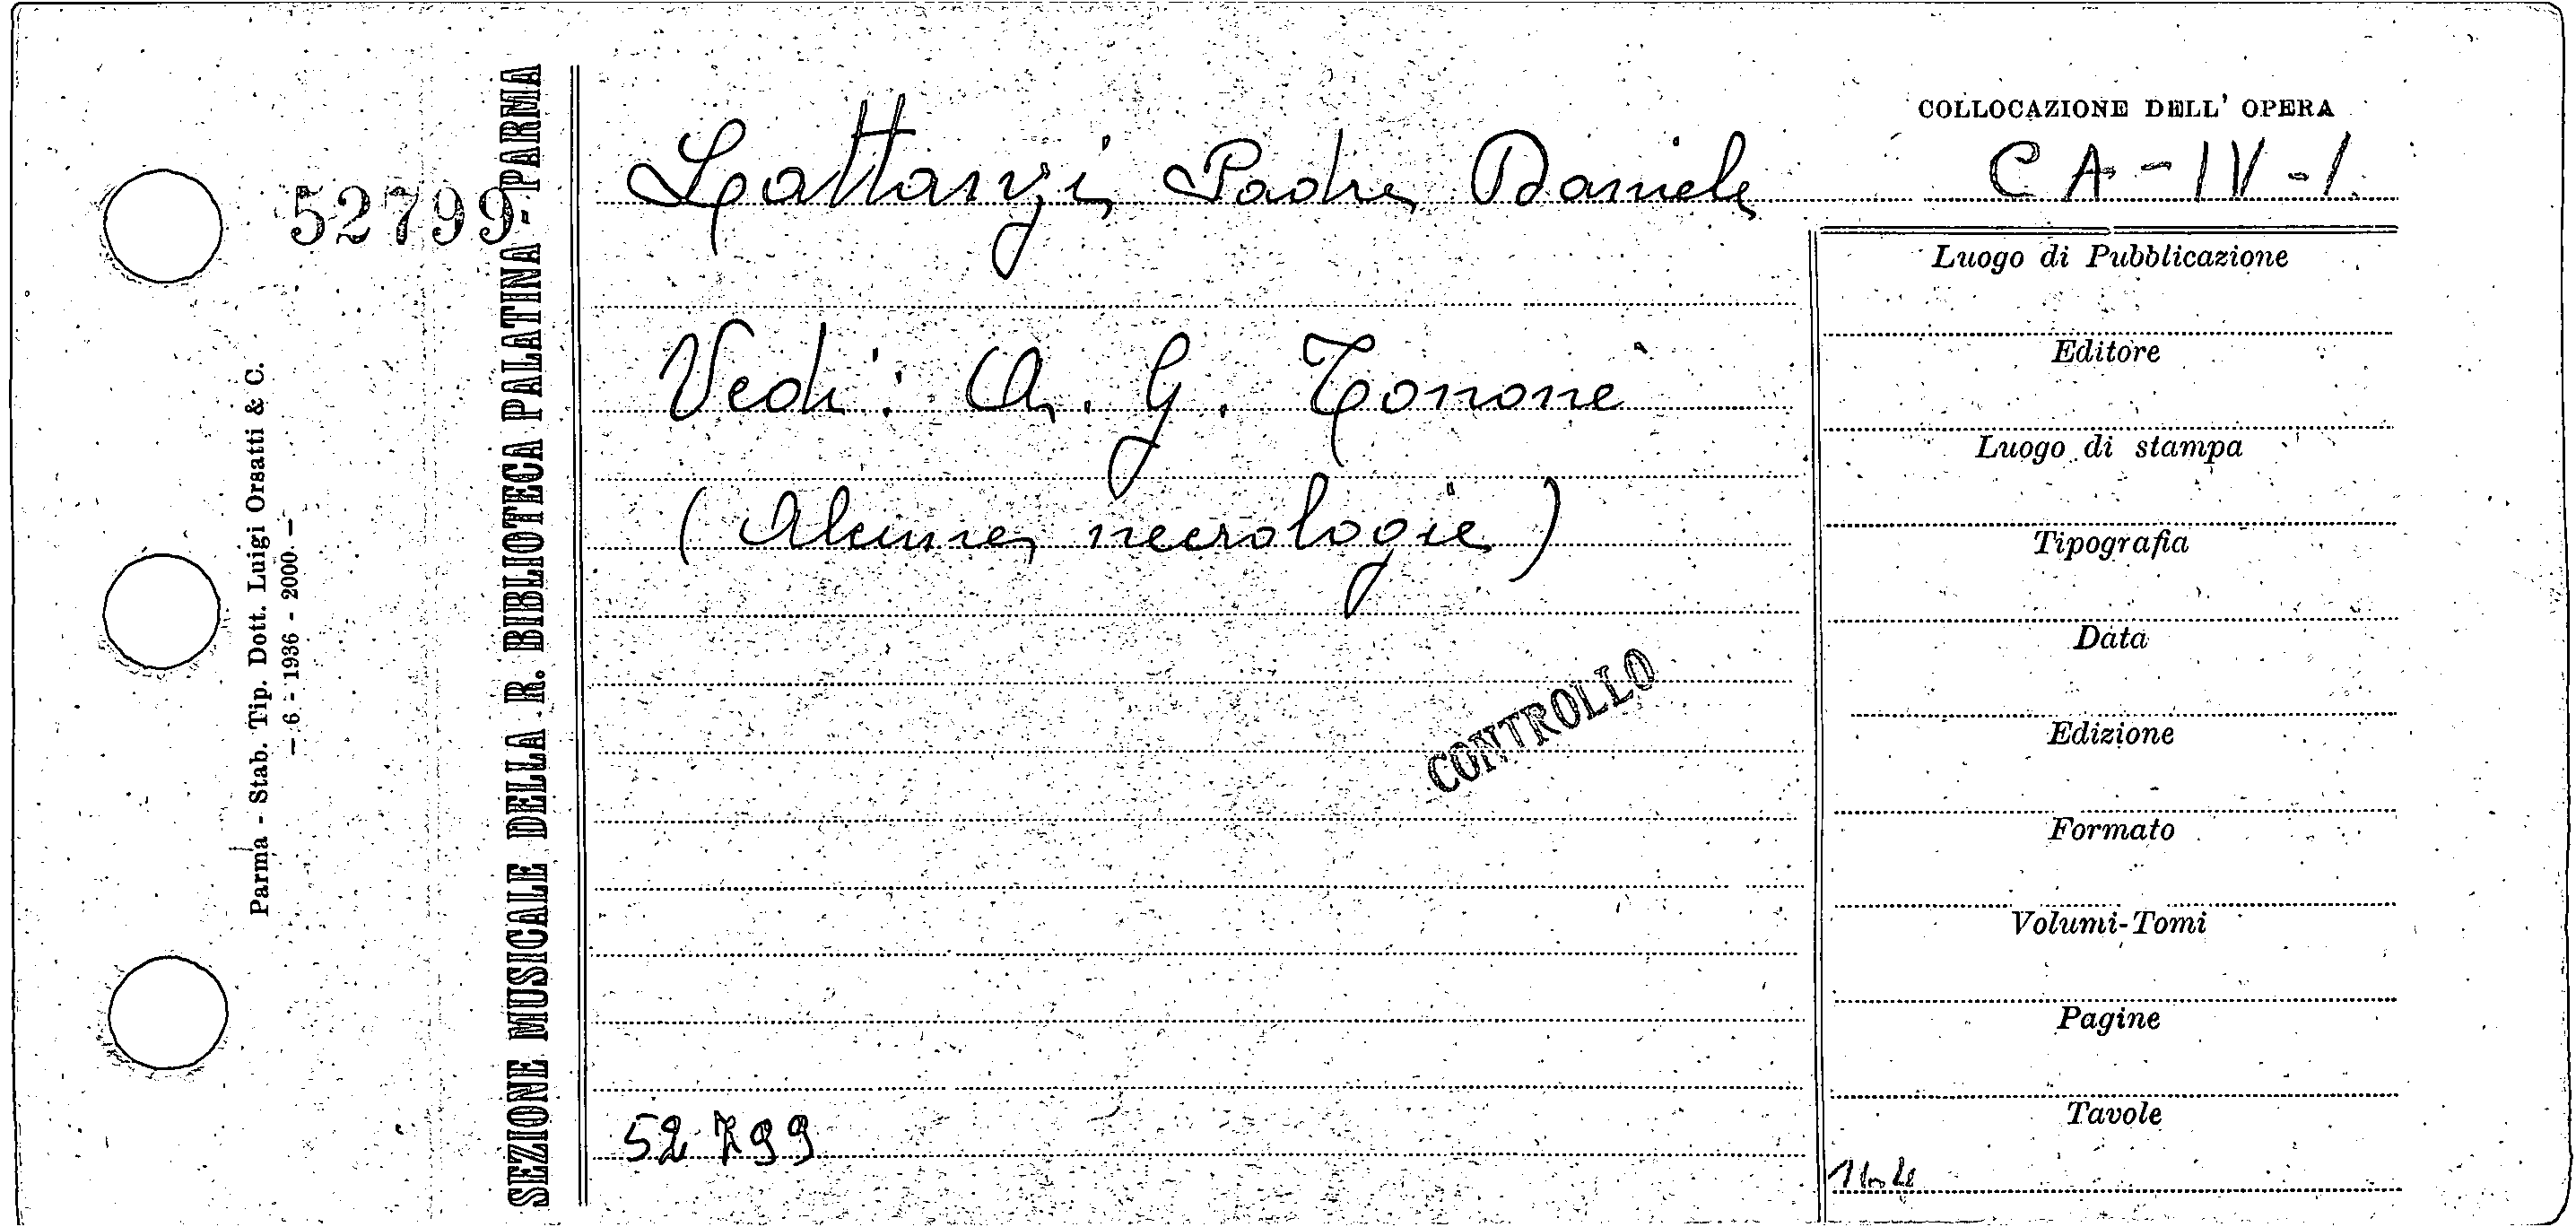 COLLOCAZIONE DELL' OPERA
Lattanzi Padre Daniele
CA-IV-1.
52799
Vedi: A. G. Tononi
(Alcune necrologie)
CONTROLLO
52799
Luogo di Pubblicazione
Editore
Luogo di stampa
Tipografia
Data
Edizione
Formato
Volumi-Tomi
Pagine
Tavole
SEZIONE MUSICALE DELLA R. BIBLIOTECA PALATINA - PARMA
Parma - Stab. Tip. Dott. Luigi Orsatti & C.
— 6 - 1936 - 2000 —